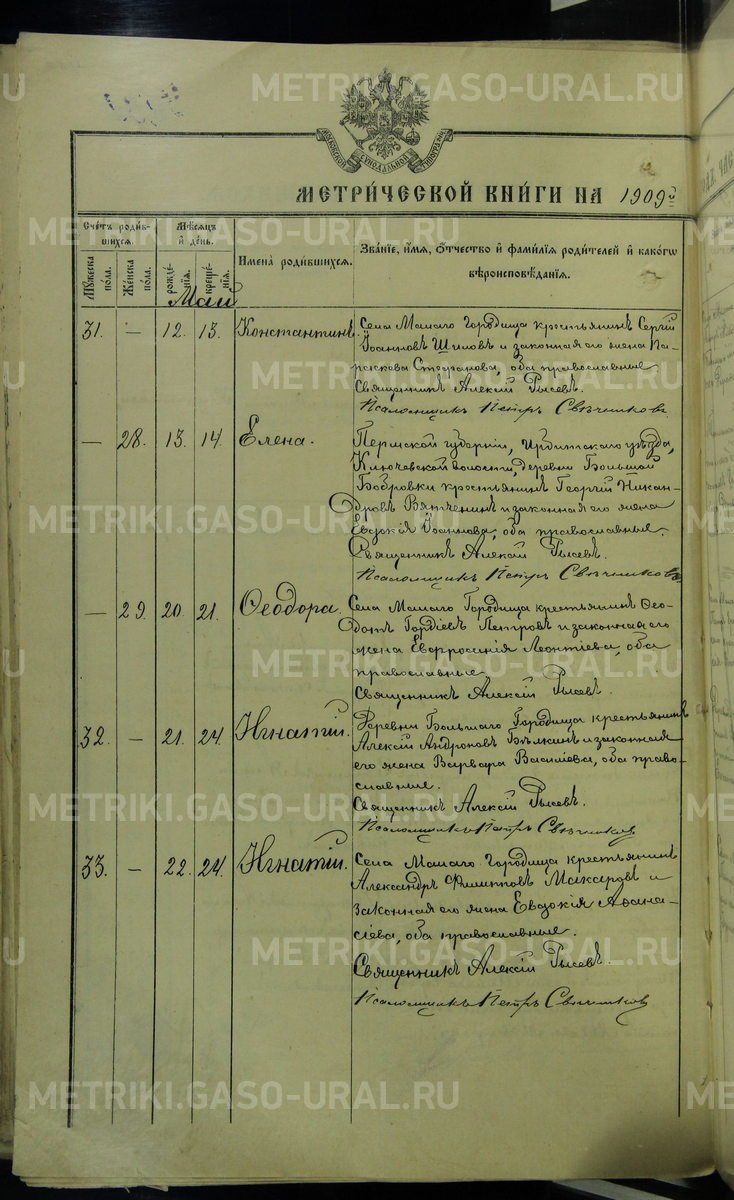 METRIKI.GASO-URAL.RU
МЕТРИ́ЧЕСКОЙ КНИ́ГИ НА 1909й
Сче́тъ роди́в-
шихся.
Мѣ́сяцъ
и҆ де́нь.
Мꙋ́жеска
по́ла.
Же́нска
по́ла.
рожде́-
нїѧ.
креще́-
нїѧ.
И҆мена̀ роди́вшихся.
Зва́нїе, и҆́мѧ, ѻ҆́тчество и҆ фами́лїѧ роди́телей и҆ како́гѡ
вѣроисповѣ́данїѧ.
Май
31. — 12. 13. Константинъ.
Села Малаго Городища крестьянинъ Сергій
Іоанновъ Шиловъ и законная его жена Па-
раскева Стефанова, оба православные
Священникъ Алексій
Псаломщикъ Петръ Свѣчниковъ
— 28. 13. 14. Елена.
Пермской губерніи, Ирбитскаго уѣзда,
Ключевской волости, деревни Большой
Бобровки крестьянинъ Георгій Никан-
дровъ Вятченинъ и законная его жена
Евдокія Іоаннова, оба православные.
Священникъ Алексій
Псаломщикъ Петръ Свѣчниковъ
— 29. 20. 21. Ѳеодора.
Села Малаго Городища крестьянинъ Ѳео-
дотъ Гордіевъ Петровъ и законная его
жена Евфросинія Леонтіева, оба
православные
Священникъ Алексій
32. — 21. 24. Игнатій.
Деревни Большаго Городища крестьянинъ
Алексій Андроновъ Бѣлкинъ и законная
его жена Варвара Василіева, оба право-
славные.
Священникъ Алексій
Псаломщикъ Петръ Свѣчниковъ
33. — 22. 24. Игнатій.
Села Малаго Городища крестьянинъ
Александръ Филипповъ Макаровъ и
законная его жена Евдокія Аѳана-
сіева, оба православные.
Священникъ Алексій
Псаломщикъ Петръ Свѣчниковъ